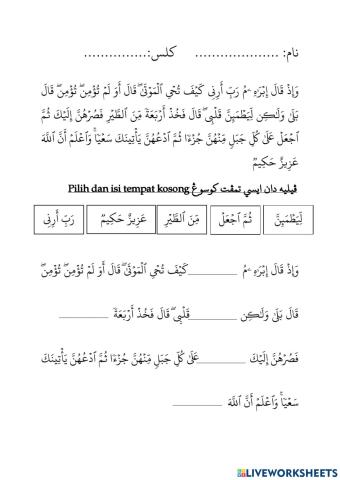 نام: .................... کلس:...............
وَإِذْ قَالَ إِبْرَٰهِـۧمُ رَبِّ أَرِنِى كَيْفَ تُحْىِ ٱلْمَوْتَىٰ ۖ قَالَ أَوَ لَمْ تُؤْمِن ۖ تُؤْمِن ۖ قَالَ
بَلَىٰ وَلَـٰكِن لِّيَطْمَئِنَّ قَلْبِى ۖ قَالَ فَخُذْ أَرْبَعَةً مِّنَ ٱلطَّيْرِ فَصُرْهُنَّ إِلَيْكَ ثُمَّ
ٱجْعَلْ عَلَىٰ كُلِّ جَبَلٍ مِّنْهُنَّ جُزْءًا ثُمَّ ٱدْعُهُنَّ يَأْتِينَكَ سَعْيًا ۚ وَٱعْلَمْ أَنَّ ٱللَّهَ
عَزِيزٌ حَكِيمٌ
ڤيليه دان ايسي تمڤت کوسوڠ Pilih dan isi tempat kosong
لِّيَطْمَئِنَّ ثُمَّ ٱجْعَلْ مِّنَ ٱلطَّيْرِ عَزِيزٌ حَكِيمٌ رَبِّ أَرِنِى
وَإِذْ قَالَ إِبْرَٰهِـۧمُ __________ كَيْفَ تُحْىِ ٱلْمَوْتَىٰ ۖ قَالَ أَوَ لَمْ تُؤْمِن ۖ تُؤْمِن ۖ
قَالَ بَلَىٰ وَلَـٰكِن __________ قَلْبِى ۖ قَالَ فَخُذْ أَرْبَعَةً __________
فَصُرْهُنَّ إِلَيْكَ __________ عَلَىٰ كُلِّ جَبَلٍ مِّنْهُنَّ جُزْءًا ثُمَّ ٱدْعُهُنَّ يَأْتِينَكَ
سَعْيًا ۚ وَٱعْلَمْ أَنَّ ٱللَّهَ __________
LIVEWORKSHEETS